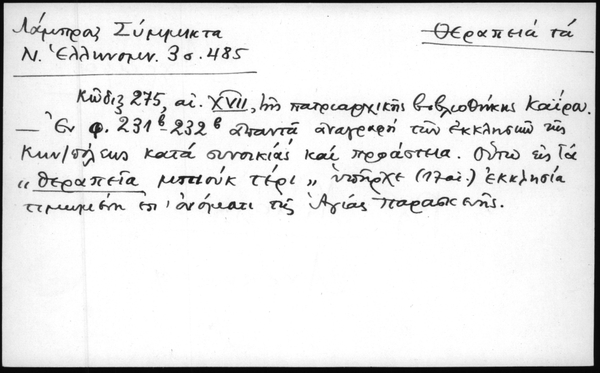 Λάμπρος Σύμμικτα
Θεραπειά τά
Ν. Ἑλληνομν. 3 σ. 485
Κῶδιξ 275, αἰ. XVII, τῆς πατριαρχικῆς βιβλιοθήκης Καΐρου.
— Ἐν φ. 231β-232β ἀπαντᾷ ἀναγραφή τῶν ἐκκλησιῶν τῆς
Κων/πόλεως κατά συνοικίας καί προάστεια. Οὕτω εἰς τά
„ Θεραπεῖα μπιούκ τέρι „ ὑπῆρχε (17 αἰ.) ἐκκλησία
τιμωμένη ἐπ' ὀνόματι τῆς Ἁγίας Παρασκευῆς.